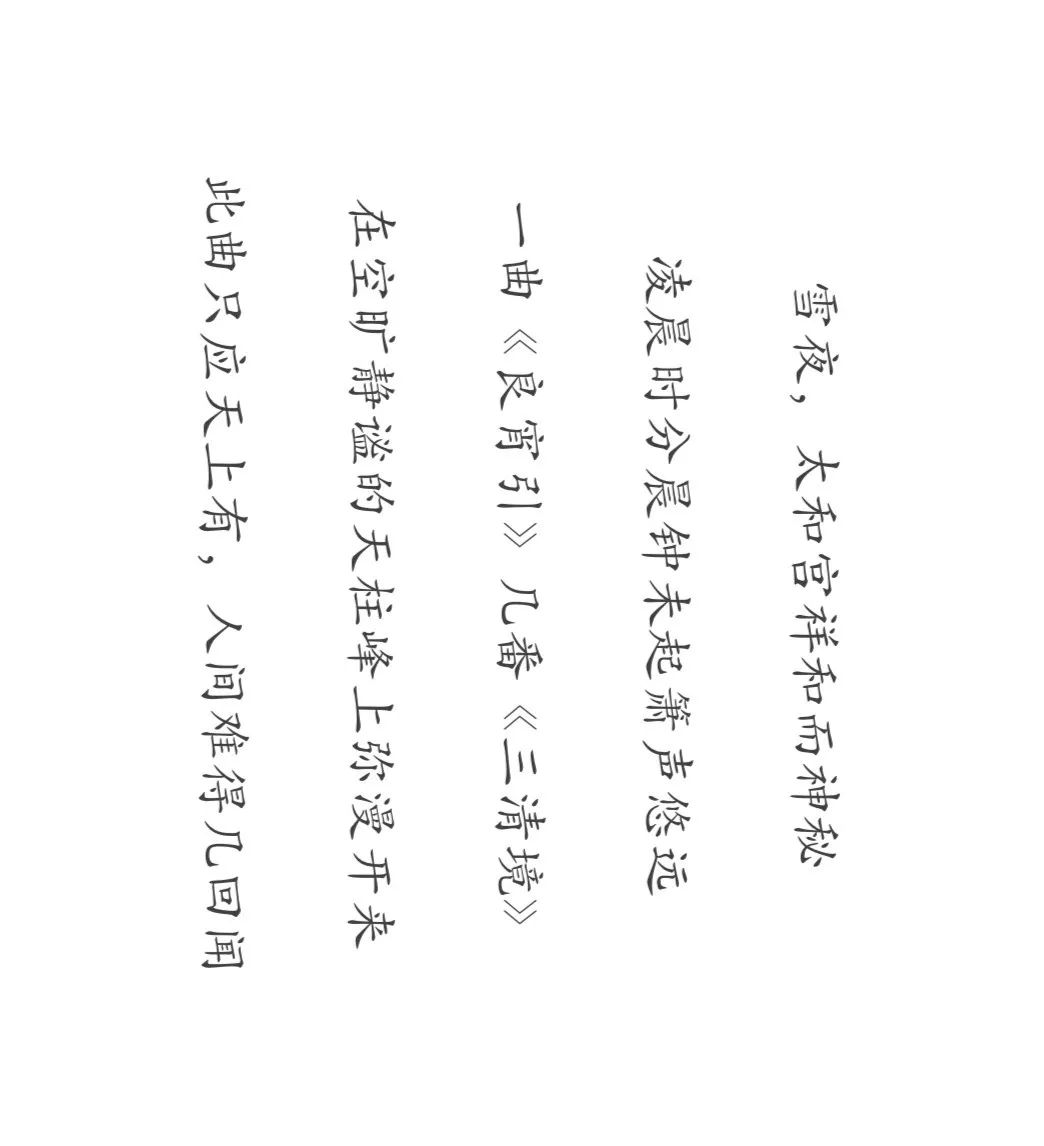 雪夜，太和宫祥和而神秘
凌晨时分晨钟未起箫声悠远
一曲《良宵引》几番《三清境》
在空旷静谧的天柱峰上弥漫开来
此曲只应天上有，人间难得几回闻